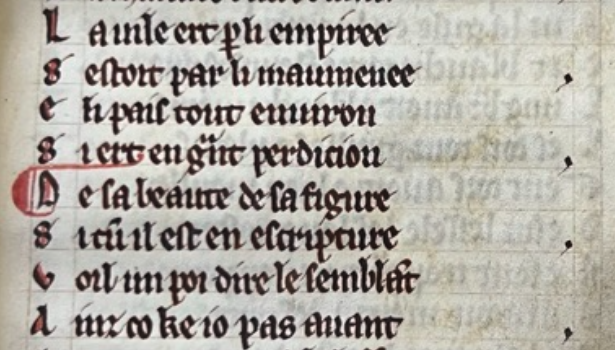 L a uile ert ꝑ li empiree
S estoit par li maumenee
E li pais tout enuiron
S i ert en gñt perdicion
D e sa beaute de sa figure
S i cũ il est en escripture
V oil un poi dire le semblãt
A inz co ke io pas auant